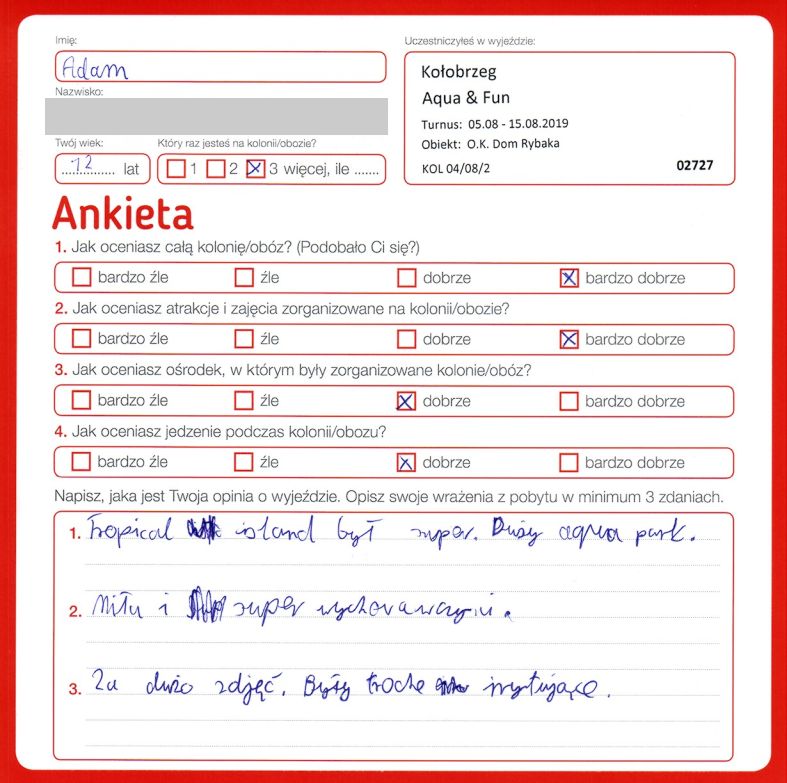 Imię:
Adam
Nazwisko:
Twój wiek:
12 lat
Który raz jesteś na kolonii/obozie?
1 2 3 więcej, ile .......
Uczestniczyłeś w wyjeździe:
Kołobrzeg
Aqua & Fun
Turnus: 05.08 - 15.08.2019
Obiekt: O.K. Dom Rybaka
KOL 04/08/2 02727
Ankieta
1. Jak oceniasz całą kolonię/obóz? (Podobało Ci się?)
bardzo źle źle dobrze bardzo dobrze
2. Jak oceniasz atrakcje i zajęcia zorganizowane na kolonii/obozie?
bardzo źle źle dobrze bardzo dobrze
3. Jak oceniasz ośrodek, w którym były zorganizowane kolonie/obóz?
bardzo źle źle dobrze bardzo dobrze
4. Jak oceniasz jedzenie podczas kolonii/obozu?
bardzo źle źle dobrze bardzo dobrze
Napisz, jaka jest Twoja opinia o wyjeździe. Opisz swoje wrażenia z pobytu w minimum 3 zdaniach.
1. Tropical island był super. Duży aqua park.
2. Miła i super wychowawczyni.
3. Za dużo zdjęć. Były troche irytujące.